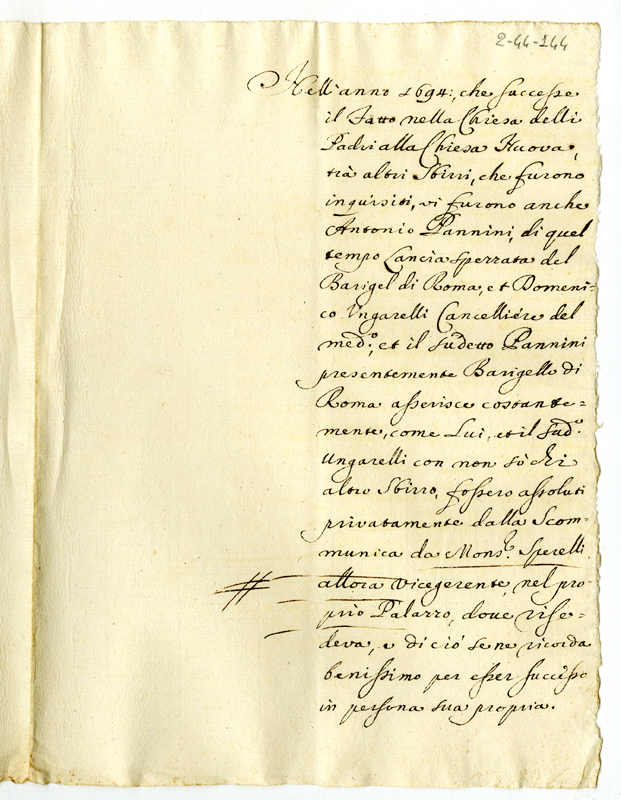 2-44-144
Nell'anno 1694:, che successe
il Fatto nella Chiesa delli
Padri alla Chiesa Nuova,
trà altri Sbirri, che furono
inquisiti, vi furono anche
Antonio Pannini, di quel
tempo Lancia sperzata del
Barigel di Roma, et Domeni=
co Ungarelli Cancelliére del
med:º, et il sudetto Pannini
presentemente Barigello di
Roma asserisce costante=
mente, come Lui, et il sud:º
Ungarelli con non sò chi
altro Sbirro, fossero assoluti
privatamente dalla Scom=
munica da Mons:r Sperelli
allora Vicegerente, nel pro=
prio Palazzo, dove rise=
deva, e di ció se ne ricorda
benissimo per esser successo
in persona sua propria.